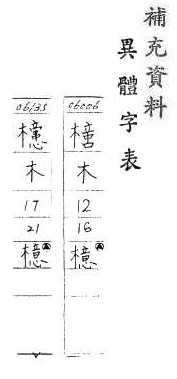 補充資料
異體字表
06006
木
12
16
檍
06135
木
17
21
檍